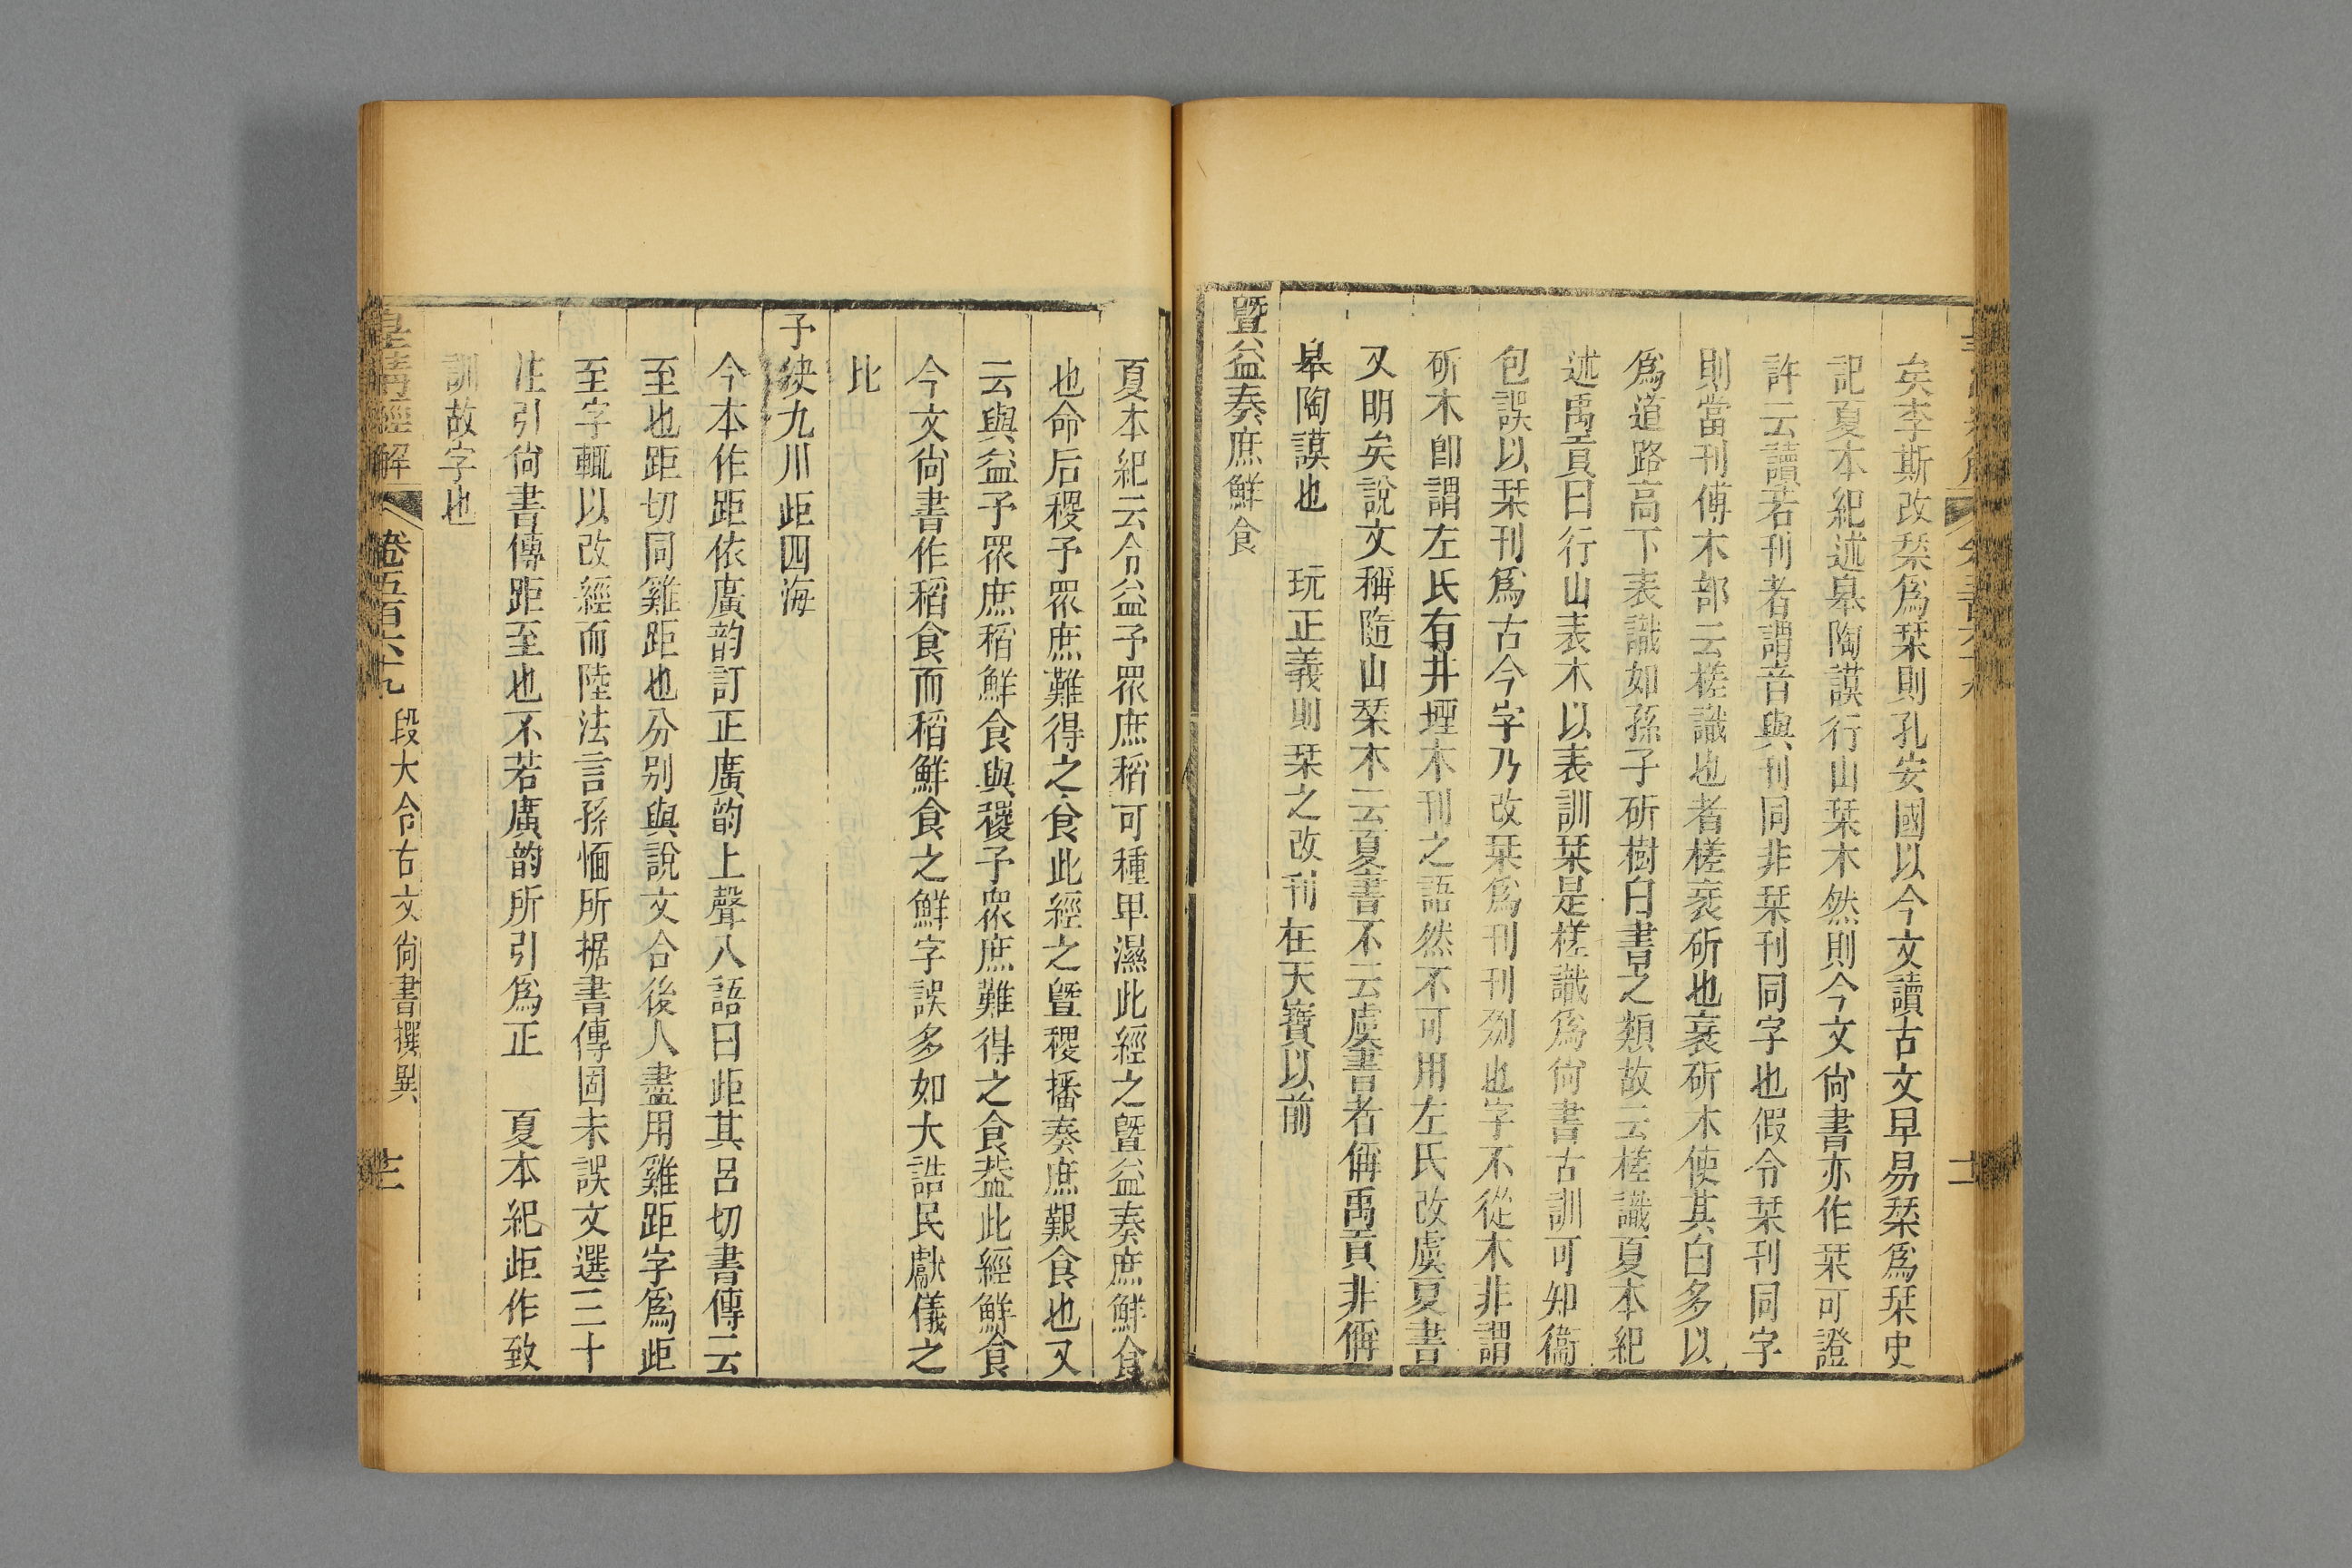 矣李斯改栞爲栞則孔安國以今文讀古文早易栞爲栞史
記夏本紀述皋陶謨行山栞木然則今文尙書亦作栞可證
許云讀若刊者謂音與刊同非栞刊同字也假令栞刊同字
則當刊傅木部云槎識也者槎衺斫也衺斫木使其白多以
爲道路高下表識如孫子斫樹白書之類故云槎識夏本紀
述禹貢曰行山表木以表訓栞是槎識爲尙書古訓可知衞
包誤以栞刊爲古今字乃改栞爲刊刊剟也字不從木非謂
斫木卽謂左氏有井堙木刊之語然不可用左氏改虞夏書
又明矣說文稱隨山栞木云夏書不云虞書者偁禹貢非偁
皋陶謨也　玩正義則栞之改刊在天寶以前
暨益奏庶鮮食
夏本紀云令益予眾庶稻可種卑濕此經之暨益奏庶鮮食
也命后稷予眾庶難得之食此經之暨稷播奏庶艱食也又
云與益予眾庶稻鮮食與稷予眾庶難得之食葢此經鮮食
今文尙書作稻食而稻鮮食之鮮字誤多如大誥民獻儀之
比
予決九川歫四海
今本作距依廣韵訂正廣韵上聲八語曰歫其呂切書傳云
至也距切同雞距也分別與說文合後人盡用雞距字爲歫
至字輒以改經而陸法言孫愐所据書傳固未誤文選三十
注引尙書傳距至也不若廣韵所引爲正　夏本紀歫作致
訓故字也
皇清經解　卷五百六十九　段大令古文尙書撰異　三